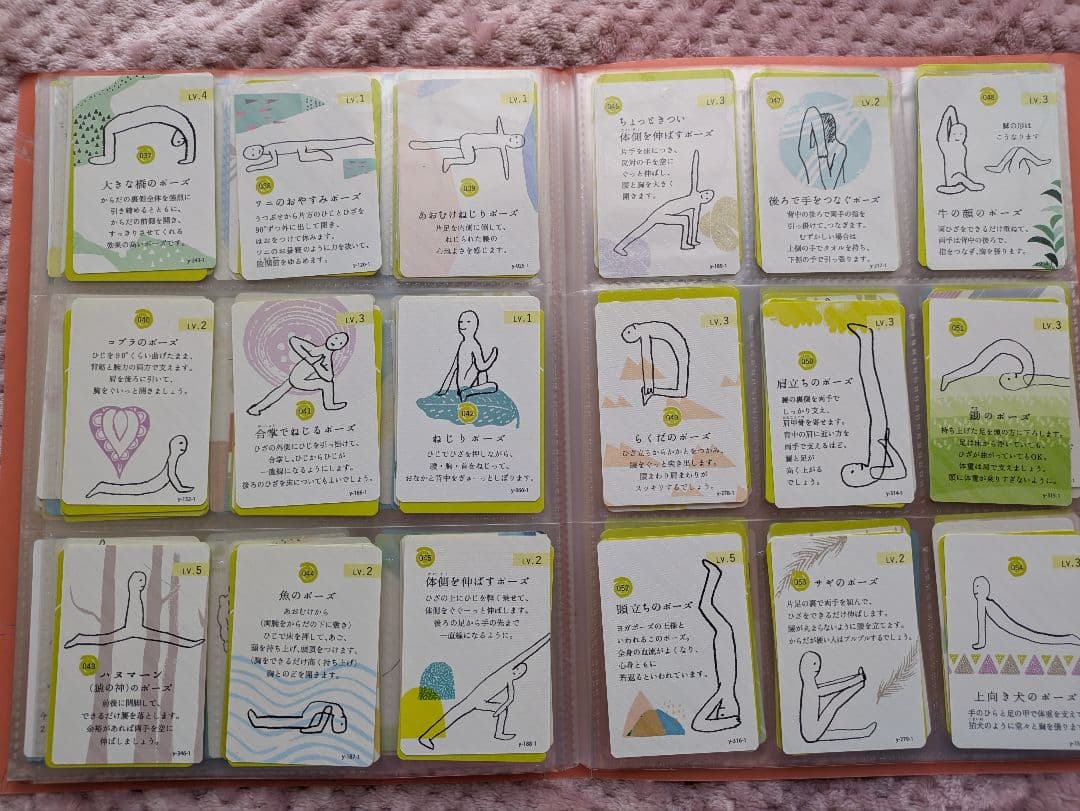 LV.4
037
大きな橋のポーズ
からだの裏側全体を強烈に
引き締めるとともに、
からだの前側を開き、
すっきりさせてくれる
効果の高いポーズです。
y-243-1
LV.1
038
ワニのおやすみポーズ
うつぶせから片方のひじとひざを
90°ずつ外に出して開き、
ほおをつけて休みます。
ワニのお昼寝のように力を抜いて、
股関節をゆるめます。
y-120-1
LV.1
039
あおむけねじりポーズ
片足を内側に倒して、
ねじられた腰の
心地よさを感じます。
LV.3
046
ちょっときつい
体側を伸ばすポーズ
片手を床につき、
反対の手を空に
ぐっと伸ばし、
腰と胸を大きく
開きます。
y-189-1
LV.2
047
後ろで手をつなぐポーズ
背中の後ろで両手の指を
引っ掛けて、つなぎます。
むずかしい場合は
上側の手でタオルを持ち、
下側の手で引っ張ります。
y-217-1
LV.3
048
脚の形は
こうなります
牛の顔のポーズ
両ひざをできるだけ重ねて、
両手は背中の後ろで、
指をつなぎ、胸を張ります。
LV.2
040
コブラのポーズ
ひじを90°くらい曲げたまま、
背筋と腕力の両方で支えます。
肩を後ろに引いて、
胸をぐいっと開きましょう。
y-132-1
LV.3
041
合掌でねじるポーズ
ひざの外側にひじを引っ掛けて、
合掌し、ひじからひじが
一直線になるようにします。
後ろのひざを床についてもよいでしょう。
y-166-1
LV.1
042
ねじりポーズ
ひじでひざを押しながら、
腰・胸・首をねじって、
おなかと背中をぎゅーっとしぼります。
y-360-1
LV.3
049
らくだのポーズ
ひざ立ちからかかとをつかみ、
腰をぐっと突き出します。
腰まわり肩まわりが
スッキリするでしょう。
y-278-1
LV.3
050
肩立ちのポーズ
腰の裏側を両手で
しっかり支え、
肩甲骨を寄せます。
背中の肩に近い方を
両手で支えるほど、
腰と足が
高く上がる
でしょう。
y-314-1
LV.3
051
鋤のポーズ
持ち上げた足を頭の方に下ろします。
足は床から浮いていても、
ひざが曲がっていてもOK。
体重は肩で支えましょう。
頭に体重が乗りすぎないように。
y-315-1
LV.5
043
ハヌマーン
(猿の神)のポーズ
前後に開脚して、
できるだけ腰を落とします。
余裕があれば両手を空に
伸ばしましょう。
y-346-1
044
LV.2
魚のポーズ
あおむけから
(両腕をからだの下に敷き)
ひじで床を押して、あご、
頭を持ち上げ、頭頂をつけます。
(胸をできるだけ高く持ち上げ)
胸とのどを開きます。
y-187-1
045
LV.2
体側を伸ばすポーズ
ひざの上にひじを軽く乗せて、
体側をぐぐーっと伸ばします。
後ろの足から手の先まで
一直線になるように。
y-188-1
LV.5
052
頭立ちのポーズ
ヨガポーズの王様と
いわれるこのポーズ。
全身の血流がよくなり、
心身ともに
若返るといわれています。
y-316-1
LV.2
053
サギのポーズ
片足の裏で両手を組んで、
ひざをできるだけ伸ばします。
腰が丸まらないように腰を立てます。
からだが硬い人はプルプルするでしょう。
y-270-1
054
LV.3
上向き犬のポーズ
手のひらと足の甲で体重を支えて
狛犬のように堂々と胸を張ります